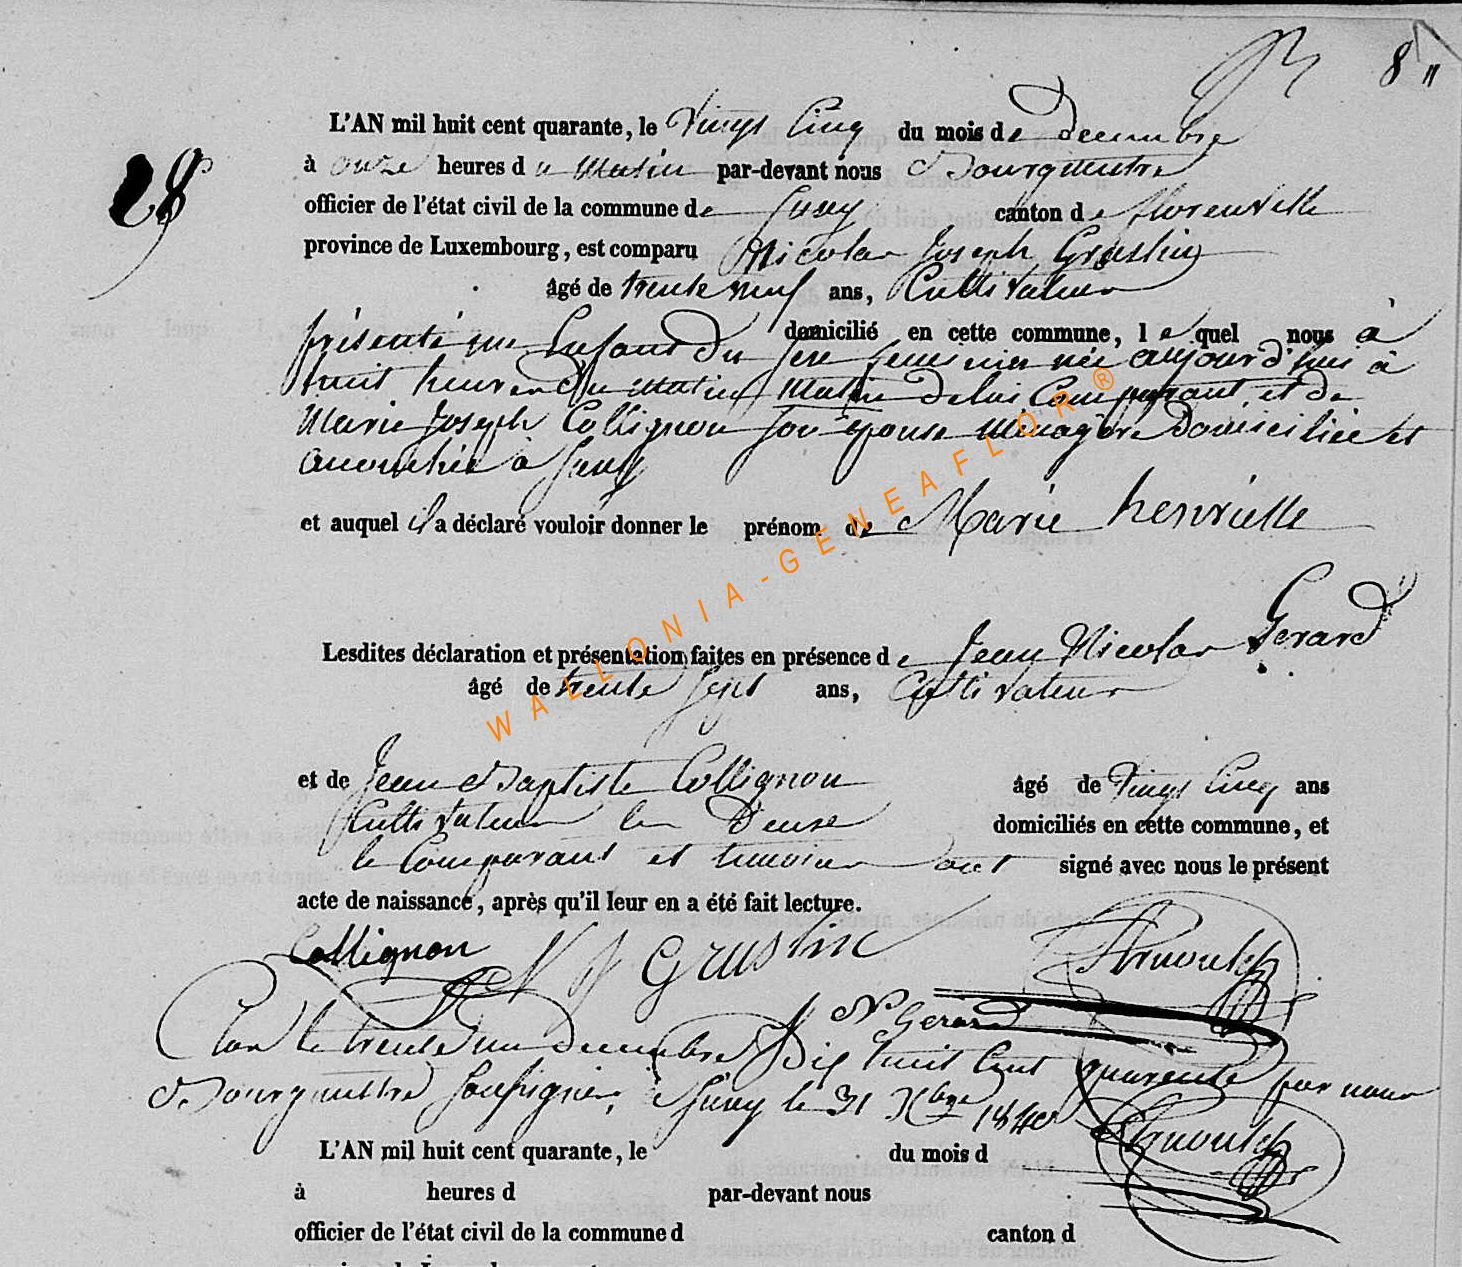 8 "
L'AN mil huit cent quarante, le Vingt Cinq du mois de decembre
28
à onze heures du Matin par-devant nous Bourgmestre
officier de l'état civil de la commune de Suxy canton de florenville
province de Luxembourg, est comparu Nicolas Joseph Gruslin
âgé de trente neuf ans, Cultivateur
domicilié en cette commune, lequel nous à
présenté un Enfant du sexe feminin née aujourd'hui à
huit heures du Matin Matin de lui Comparant et de
Marie Joseph Collignon son épouse Ménagère Domiciliée et
accouchée à Suxy
et auquel il a déclaré vouloir donner le prénom de Marie henriette
Lesdites déclaration et présentation faites en présence de Jean Nicolas Gerard
âgé de trente sept ans, Cultivateur
et de Jean Baptiste Collignon âgé de Vingt Cinq ans
Cultivateur les Deux domiciliés en cette commune, et
le Comparant et temoins ont signé avec nous le présent
acte de naissance, après qu'il leur en a été fait lecture.
Collignon N J Gruslin Arnould
J N Gerard
Clos le trente un decembre Dix huit Cent quarente par nous
Bourgmestre soussigné, à Suxy le 31 Xbre 1840
Arnould
L'AN mil huit cent quarante, le du mois d
à heures d par-devant nous
officier de l'état civil de la commune d canton d
WALLONIA-GENEAFLOR®